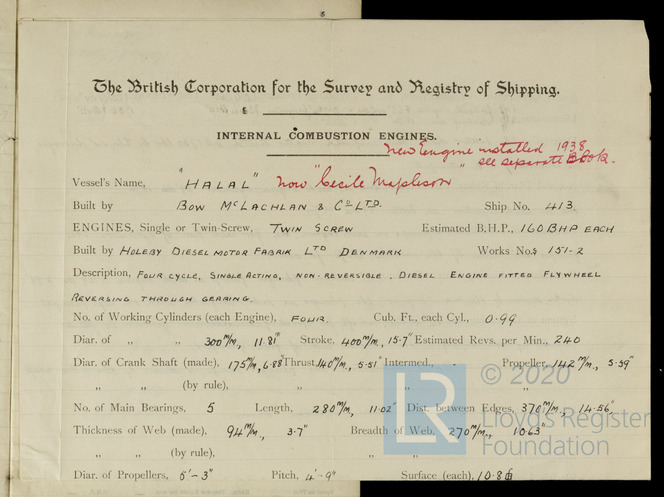 The British Corporation for the Survey and Registry of Shipping.
INTERNAL COMBUSTION ENGINES.
New Engine installed 1938
" see separate Book.
Vessel's Name, "HALAL" now "Cecile Mapleson"
Built by BOW McLACHLAN & Co LTD. Ship No. 413.
ENGINES, Single or Twin-Screw, TWIN SCREW Estimated B.H.P., 160 BHP EACH
Built by HOLEBY DIESEL MOTOR FABRIK LTD DENMARK Works No.s 151-2
Description, FOUR CYCLE, SINGLE ACTING, NON-REVERSIBLE. DIESEL ENGINE FITTED FLYWHEEL
REVERSING THROUGH GEARING.
No. of Working Cylinders (each Engine), FOUR. Cub. Ft., each Cyl., 0.99
Diar. of „ „ 300 m/m, 11.81" Stroke, 400 m/m, 15.7" Estimated Revs. per Min., 240
Diar. of Crank Shaft (made), 175 m/m, 6.88" Thrust, 140 m/m, 5.51" Intermed., - Propeller, 142 m/m, 5.59"
„ „ (by rule), „ „ „
No. of Main Bearings, 5 Length, 280 m/m, 11.02" Dist. between Edges, 370 m/m, 14.56"
Thickness of Web (made), 94 m/m, 3.7" Breadth of Web, 270 m/m, 10.63"
„ „ (by rule), „ „
Diar. of Propellers, 5'-3" Pitch, 4'-9" Surface (each), 10.8
© 2020
LR
Lloyd's Register
Foundation